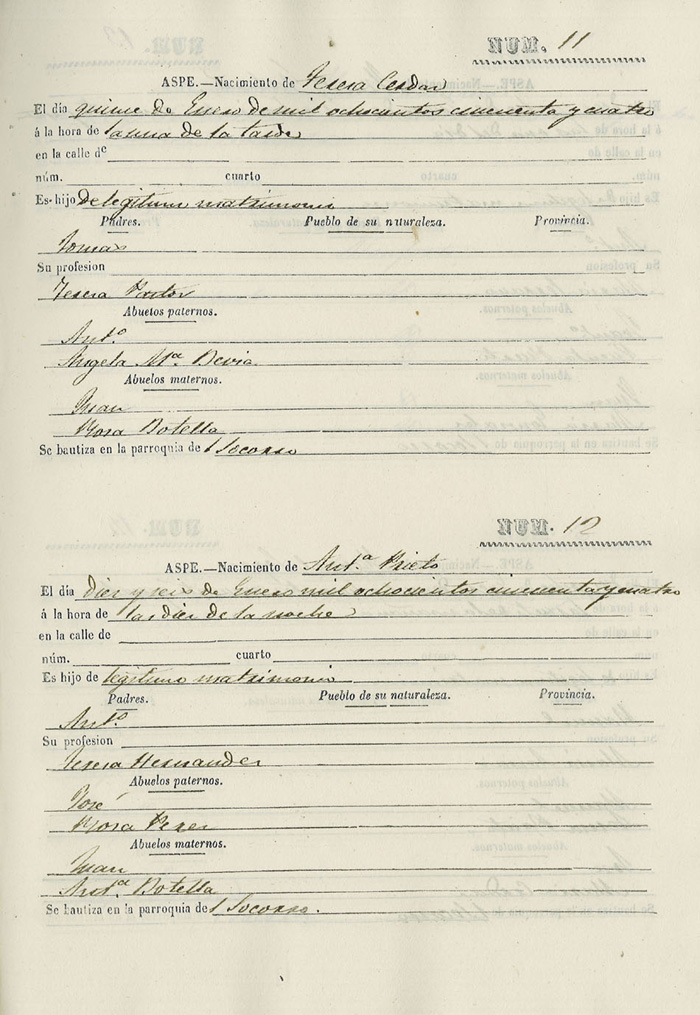 NUM. 11
ASPE.—Nacimiento de Teresa Cerdan
El día quince de Enero de mil ochocientos cincuenta y cuatro
á la hora de la una de la tarde
en la calle de
núm. cuarto
Es hijo de legitimo matrimonio
Padres. Pueblo de su naturaleza. Provincia.
Tomas
Su profesion
Teresa Pastor
Abuelos paternos.
Ant.º
Angela M.ª Devia
Abuelos maternos.
Juan
Rosa Botella
Se bautiza en la parroquia de l Socorro
NUM. 12
ASPE.—Nacimiento de Ant.ª Prieto
El día diez y seis de Enero mil ochocientos cincuenta y cuatro
á la hora de las diez de la noche
en la calle de
núm. cuarto
Es hijo de legitimo matrimonio
Padres. Pueblo de su naturaleza. Provincia.
Ant.º
Su profesion
Teresa Hernandez
Abuelos paternos.
José
Rosa Perez
Abuelos maternos.
Juan
Ant.ª Botella
Se bautiza en la parroquia de l Socorro.